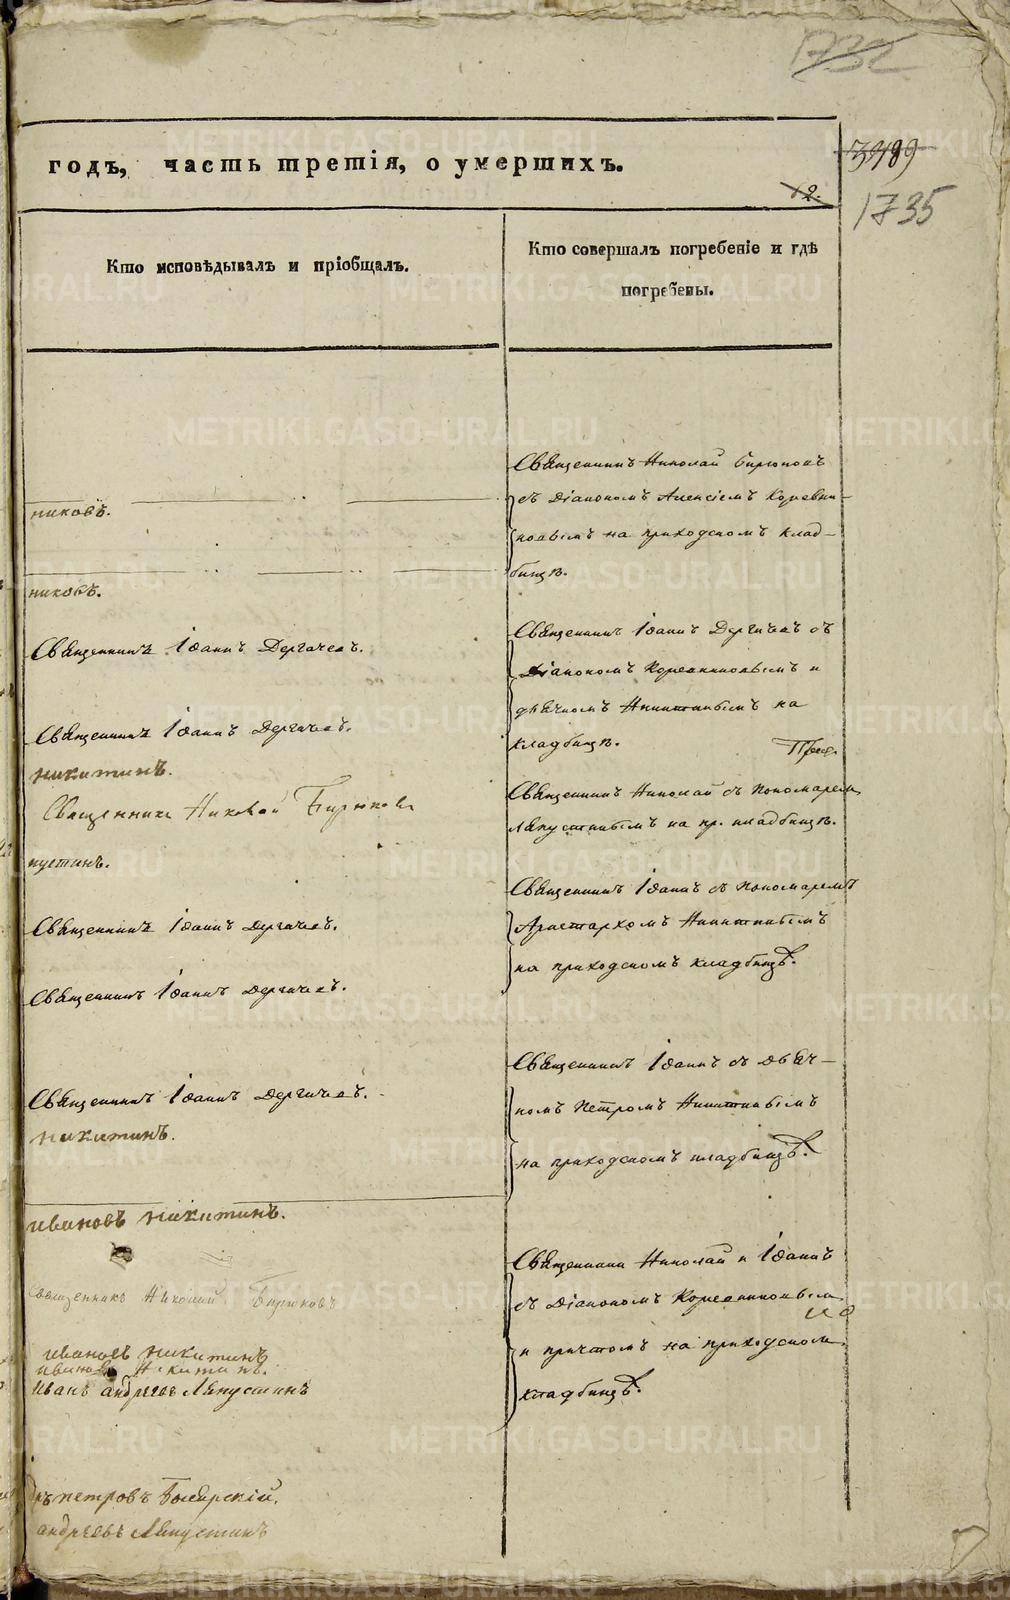 1732
годъ, часть третія, о умершихъ.
3989
2.
1735
Кто исповѣдывалъ и пріобщалъ.
Кто совершалъ погребеніе и гдѣ
погребены.
никовъ.
никовъ.
Священникъ Іоаннъ Дергачевъ.
Священникъ Іоаннъ Дергачевъ.
никитинъ.
Священникъ Николай Бирюковъ
пустинъ.
Священникъ Іоаннъ Дергачевъ.
Священникъ Іоаннъ Дергачевъ.
Священникъ Іоаннъ Дергачевъ.
никитинъ.
ивановъ никитинъ.
Священникъ Николай Бирюковъ
ивановъ никитинъ
ивановъ Никитинъ.
Иванъ андреевъ Ляпустинъ
петровъ Боярскій.
андреевъ Ляпустинъ
Священникъ Николай Бирюковъ
съ Діакономъ Алексіемъ Коревни-
ковымъ на приходскомъ клад-
бищѣ.
Священникъ Іоаннъ Дергачевъ съ
Діакономъ Коревниковымъ и
дьячкомъ Никитинымъ на
кладбищѣ.
Священникъ Николай съ Пономаремъ
Ляпустинымъ на пр. кладбищѣ.
Священникъ Іоаннъ съ Пономаремъ
Аристархомъ Никитинымъ
на приходскомъ кладбищѣ.
Священникъ Іоаннъ съ Дьяч-
комъ Петромъ Никитинымъ
на приходскомъ кладбищѣ.
Священники Николай и Іоаннъ
съ Діакономъ Коревниковымъ
и причтомъ на приходскомъ
кладбищѣ.
METRIKI.GASO-URAL.RU